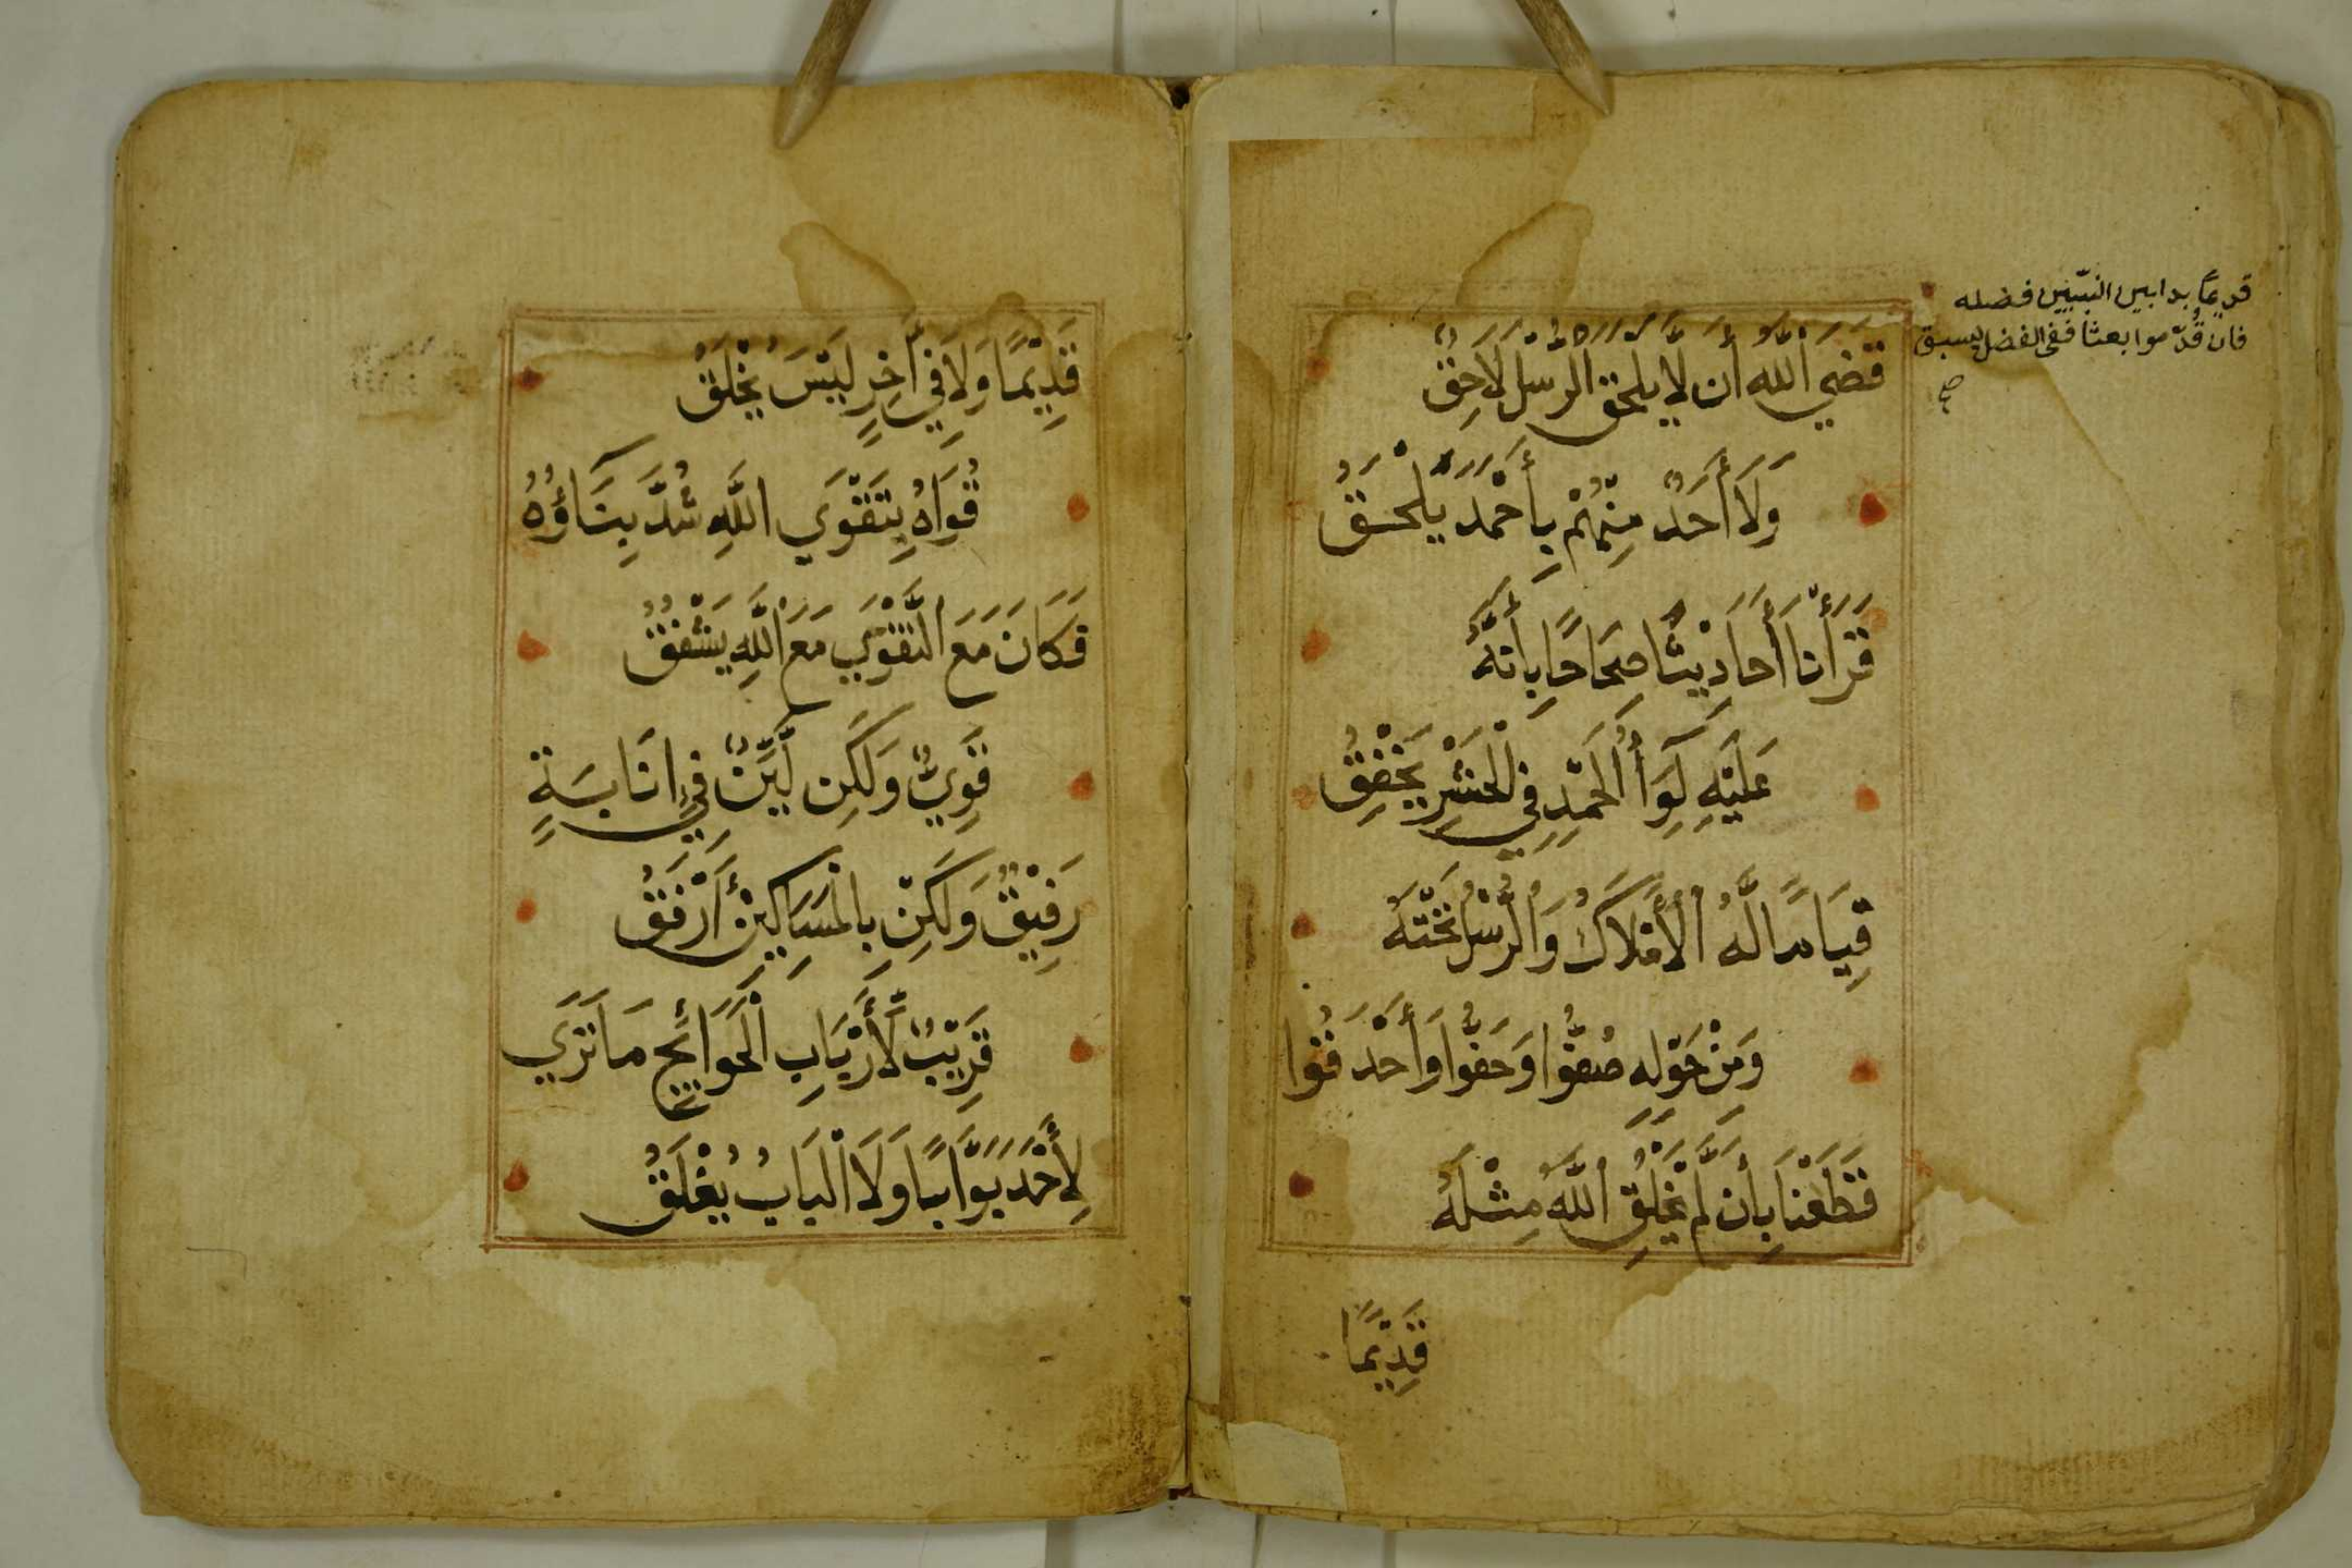 قديمًا بدا بين النبيّين فضله
فان قُدّموا بعثا ففى الفضل يسبق
صح
قَضَى اللَّهُ أَن لَّا يَلْحَقَ الرُّسْلَ لَاحِقٌ
وَلَا أَحَدٌ مِنْهُمْ بِأَحْمَدَ يَلْحَقُ
قَرَأْنَا أَحَادِيْثًا صِحَاحًا بِأَنَّهُ
عَلَيْهِ لِوَاءُ الْحَمْدِ فِي الْحَشْرِ يَخْفِقُ
قِيَامًا لَّهُ الْأَفْلَاكُ وَالرُّسْلُ تَحْتَهُ
وَمِنْ حَوْلِهِ صُفُّوا وَحَفُّوا وَأَحْدَقُوا
قَطَعْنَا بِأَن لَّمْ يَخْلُقِ اللَّهُ مِثْلَهُ
قَدِيْمًا
قَدِيْمًا وَلَا فِي آخِرٍ لَيْسَ يُخْلَقُ
قُوَاهُ بِتَقْوَي اللَّهِ شُدَّ بِنَاؤُهُ
فَكَانَ مَعَ التَّقْوَي مَعَ اللَّهِ يُشْفِقُ
قَوِيٌّ وَلَكِن لَّيِّنٌ فِي انَا بَسَةٍ
رَفِيْقٌ وَلَكِنْ بِالْمَسَاكِيْنِ أَرْفَقُ
قَرِيْبٌ لِّأَرْبَابِ الْحَوَائِجِ مَا تَرَي
لِأَحْمَدَ بَوَّابًا وَلَا الْبَابُ يُغْلَقُ